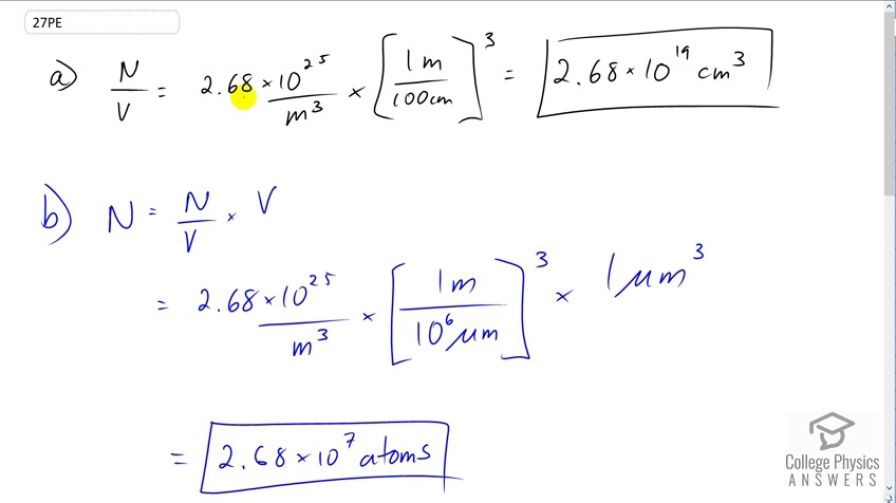 27PE
a) N/V = 2.68 × 10^25/m^3 × [1m/100cm]^3 = 2.68 × 10^19 cm^3
b) N = N/V × V
= 2.68 × 10^25/m^3 × [1m/10^6 μm]^3 × 1 μm^3
= 2.68 × 10^7 atoms
College Physics
ANSWERS